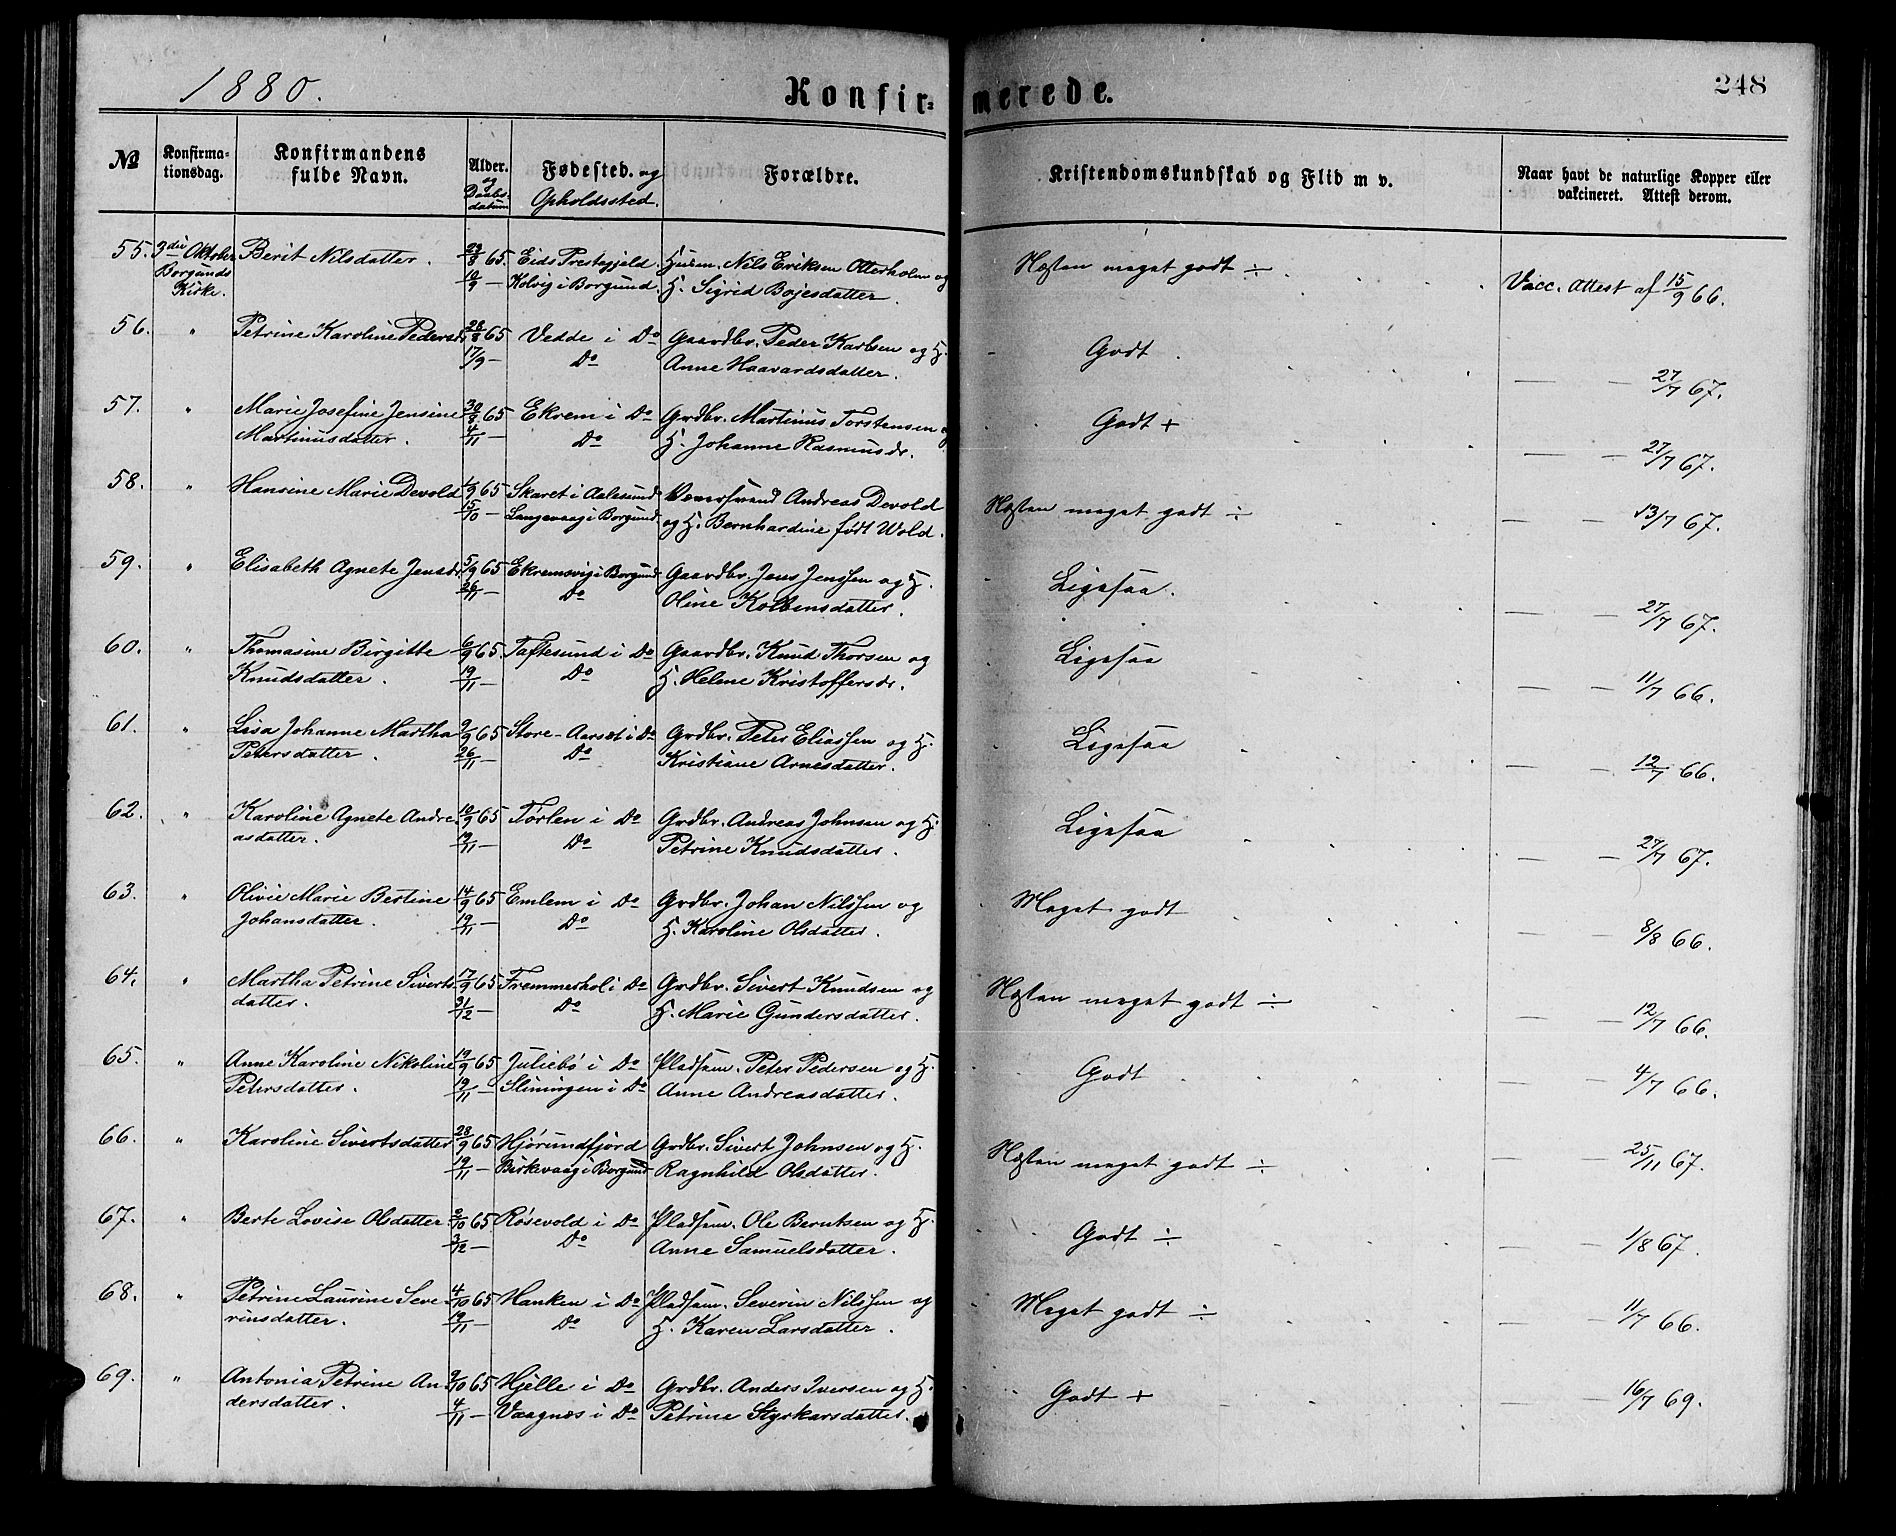 1880.
Konfir-
merede.
248
№
Konfirma-
tionsdag.
Konfirmandens
fulde Navn.
Alder.
og
Daabs-
datum
Fødested. og
Opholdssted.
Forældre.
Kristendomskundskab og Flid m v.
Naar havt de naturlige Kopper eller
vakcineret. Attest derom.
55. 3die Oktober Berit Nilsdatter. 65. Eids Prestegjeld. Husm. Nils Eriksen Otterholm og Næsten meget godt ÷ Vacc. Attest af 15/9 66.
Borgunds Kolvig i Borgund. H. Sigrid Bojesdatter.
Kirke.
56. " Petrine Karoline Pedersdr 28/8 65 Vedde i Do Gaardbr. Peder Karlsen og H. Godt. — — 27/7 67.
17/9 — Do Anne Haavardsdatter.
57. " Marie Josefine Jensine 30/8 65 Ekrem i Do Grdbr. Martinus Torstensen Godt + — — 27/7 67.
Martinusdatter. 4/11 — Do H. Johanne Rasmusdr.
58. " Hansine Marie Devold 1/9 65 Skaret i Aalesund Andreas Devold Næsten meget godt ÷ — — 13/7 67.
15/10 — Langevaag i Borgund og H. Bernhardine født Wold.
59. " Elisabeth Agnete Jensdr 5/9 65 Ekremsvig i Borgund Gaardbr. Jens Jenssen og H. Ligesaa. — — 27/7 67.
26/11 — Do Oline Kolbensdatter.
60. " Thomasine Birgitte 6/9 65. Taftesund i Do Gaardbr. Knud Thorsen og Ligesaa — — 11/7 66.
Knudsdatter. 19/11 — Do H. Helene Kristoffersdr.
61. " Lisa Johanne Martha 9/9 65 Store-Aarset i Do Grdbr. Peter Eliassen og H. Ligesaa — — 12/7 66.
Petersdatter. 26/11 — Do Kristiane Arnesdatter.
62. " Karoline Agnete Andre- 10/9 65 Tørlen i Do Grdbr. Andreas Johnsen og H. Ligesaa — — 27/7 67.
asdatter. 19/11 — Do Petrine Knudsdatter.
63. " Olivie Marie Bertine 14/9 65 Emlem i Do Grdbr. Johan Nilssen og Meget godt — — 8/8 66.
Johansdatter. 19/11 — Do H. Karoline Olsdatter.
64. " Martha Petrine Siverts- 17/9 65 Fremmerhol i Do Grdbr. Sivert Knudsen og Næsten meget godt ÷ — — 12/7 66.
datter. 31/12 — Do H. Marie Gundersdatter.
65. " Anne Karoline Nikoline 19/9 65 Juliebø i Do Pladsm. Peter Pedersen og H. Godt — — 4/7 66.
Petersdatter. 19/11 — Slinningen i Do Anne Andreasdatter.
66. " Karoline Sivertsdatter 28/9 65 Hjørundfjord Grdbr. Sivert Johnsen og H. Næsten meget godt ÷ — — 25/11 67.
19/11 — Birkevaag i Borgund Ragnhild Olsdatter.
67. " Berte Lovise Olsdatter. 65 Røsevold i Do Pladsm. Ole Berntsen og H. Godt ÷ — — 1/8 67.
3/12 — Do Anne Samuelsdatter.
68. " Petrine Laurine Seve- 4/10 65 Hanken i Do Pladsm. Severin Nilssen og Meget godt ÷ — — 11/7 66.
rinsdatter. 19/11 — Do H. Karen Larsdatter.
69. " Antonia Petrine An- 9/10 65 Hjelle i Do Grdbr. Anders Iversen og H. Godt + — — 16/7 69.
dersdatter. 4/11 — Vaagnes i Do Petrine Styrkarsdatter.